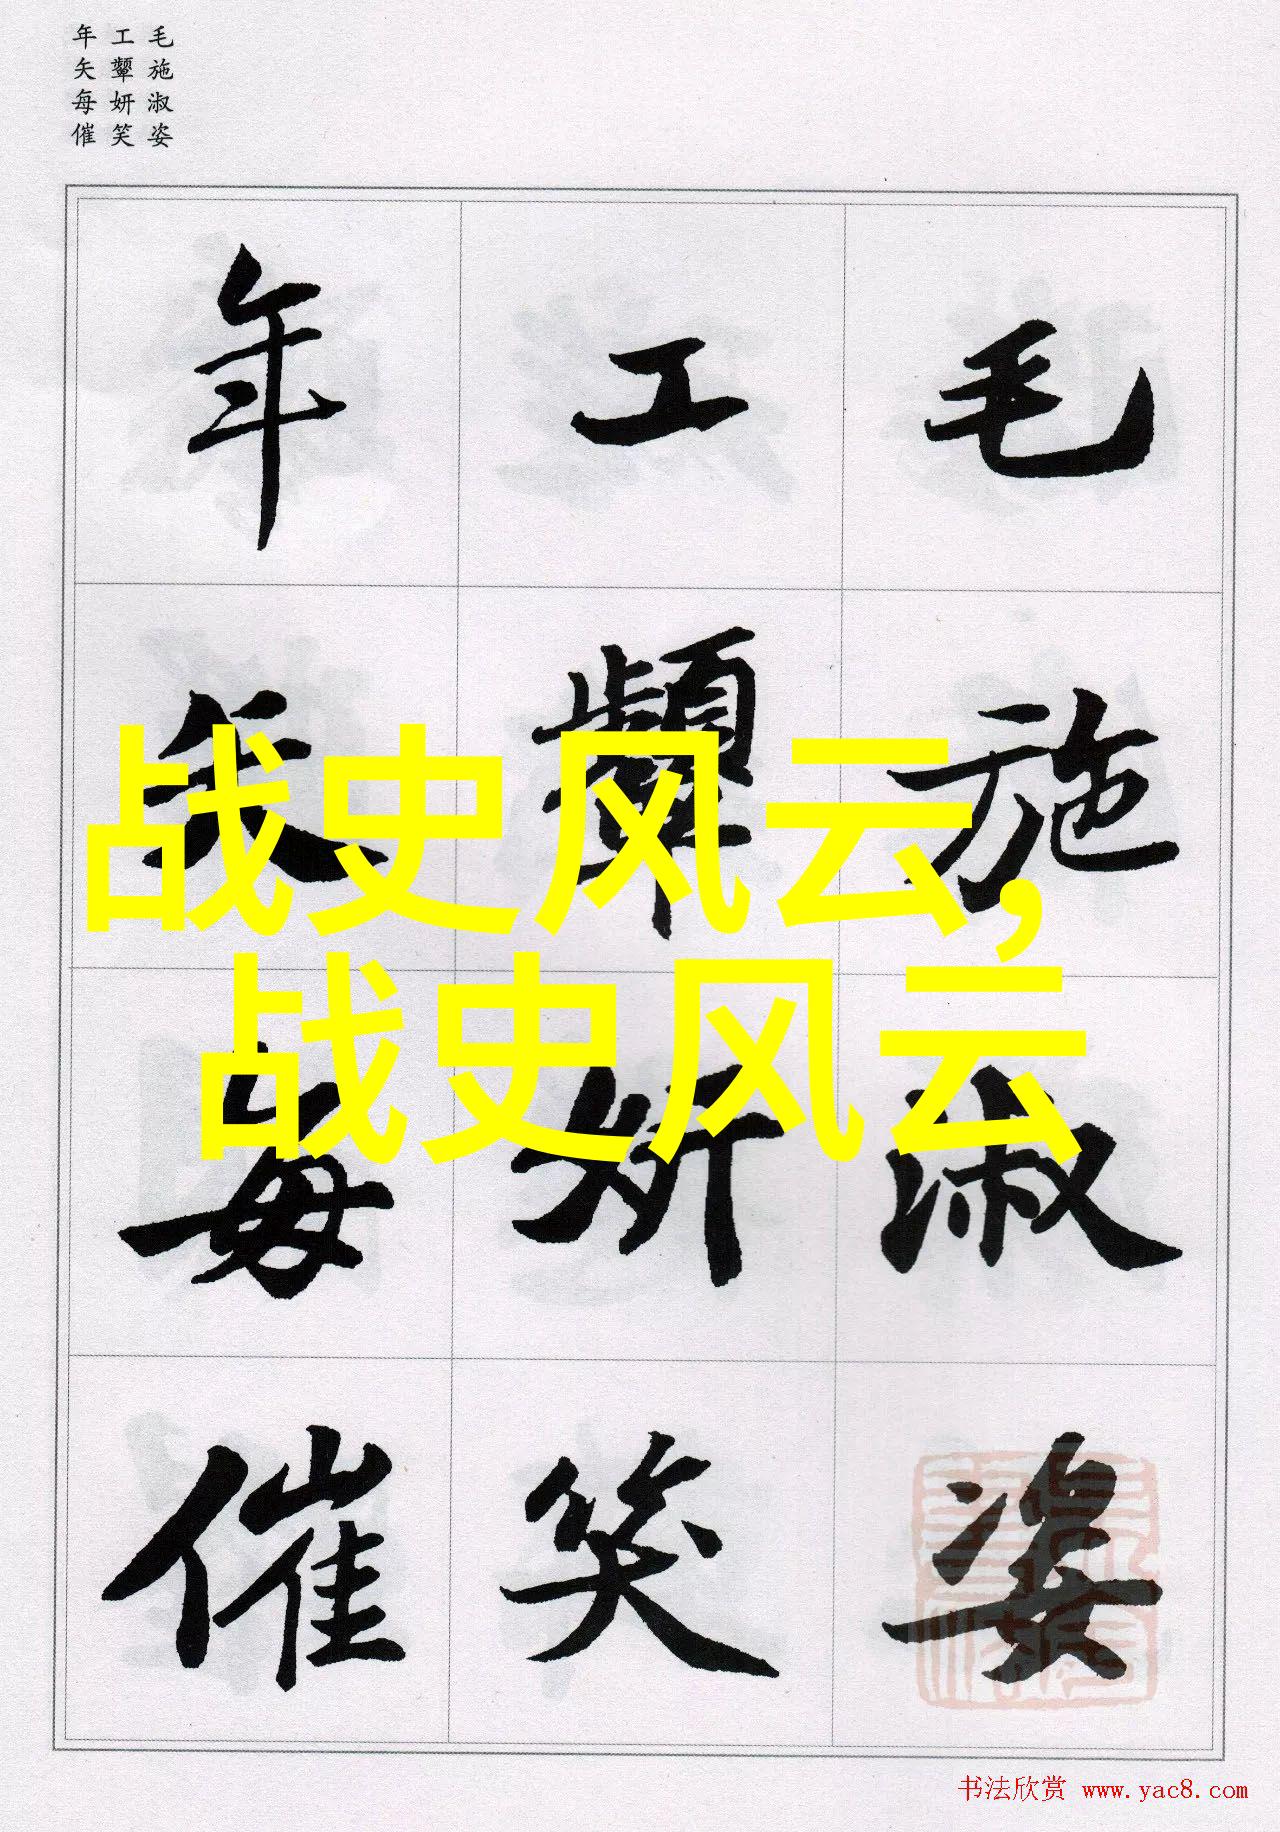 毛施淑姿
工颦妍笑
年矢每催
毛施淑姿
工颦妍笑
年矢每催
战史风云,
战史风云
书法欣赏 www.yac8.com